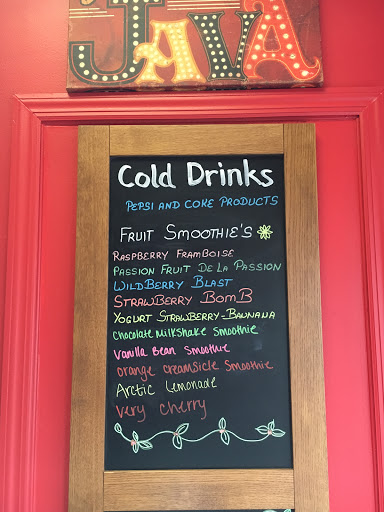 JAVA
Cold Drinks
PEPSI AND COKE PRODUCTS
FRUIT SMOOTHIE'S
RASPBERRY FRAMBOISE
PASSION FRUIT DE LA PASSION
WILDBERRY BLAST
STRAWBERRY BOMB
YOGURT STRAWBERRY-BANNANA
Chocolate Milkshake Smoothie
Vanilla Bean Smoothie
Orange Creamsicle Smoothie
Arctic Lemonade
Very Cherry